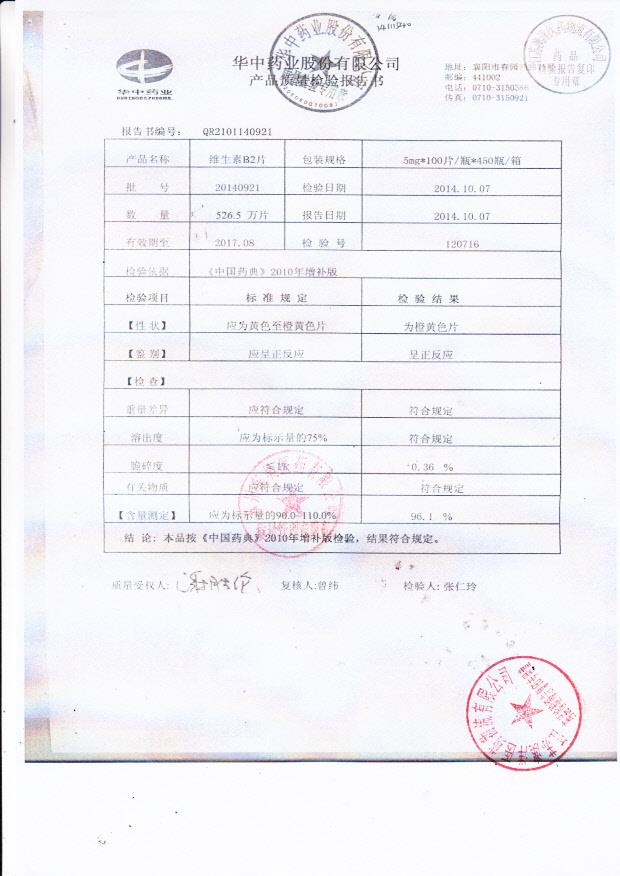 华中药业
华中药业股份有限公司
产品质量检验报告书
地址：襄阳市春园
邮编：441002
电话：0710-3150386
传真：0710-3150921
药品
检验报告复印
专用章
报告书编号： QR2101140921
产品名称 维生素B2片 包装规格 5mg*100片/瓶*450瓶/箱
批 号 20140921 检验日期 2014.10.07
数 量 526.5 万片 报告日期 2014.10.07
有效期至 2017.08 检 验 号 120716
检验依据 《中国药典》2010年增补版
检验项目 标 准 规 定 检 验 结 果
【性 状】 应为黄色至橙黄色片 为橙黄色片
【鉴 别】 应呈正反应 呈正反应
【检 查】
重量差异 应符合规定 符合规定
溶出度 应为标示量的75% 符合规定
脆碎度 0.36 %
有关物质 应符合规定 符合规定
【含量测定】 应为标示量的90.0-110.0% 96.1 %
结 论：本品按《中国药典》2010年增补版检验，结果符合规定。
质量受权人： 复核人:曾纬 检验人: 张仁玲